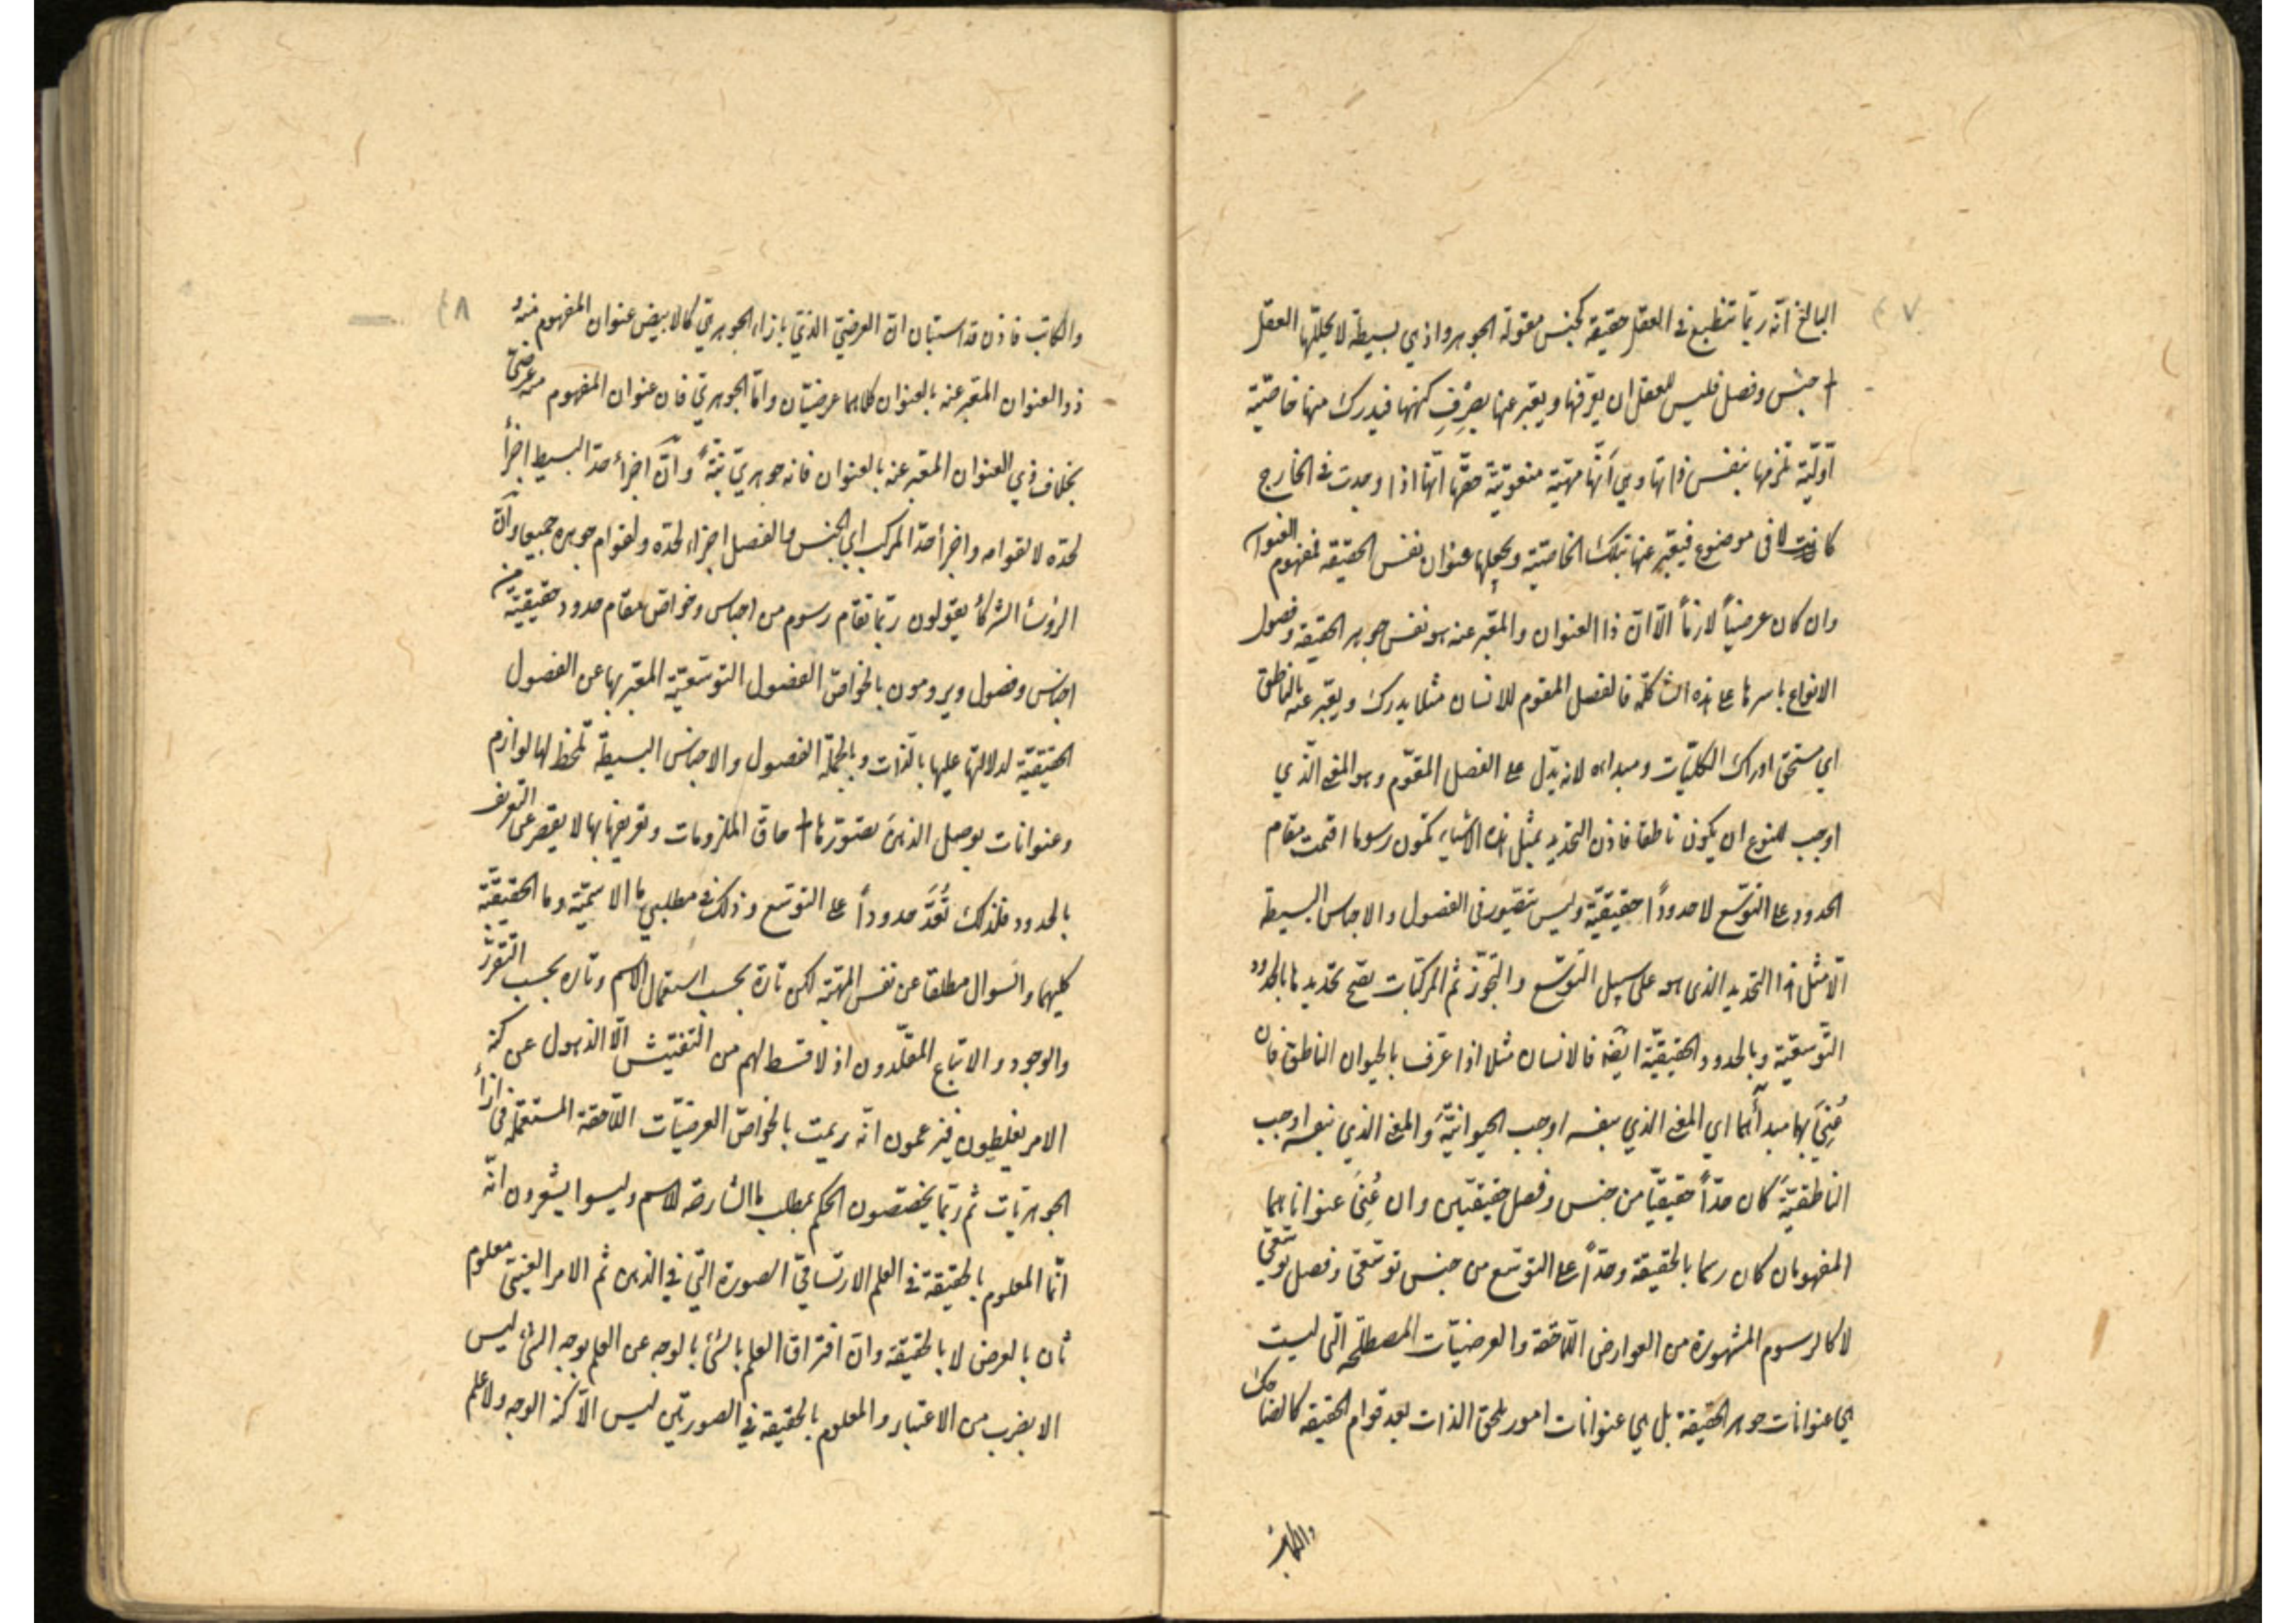 ٧
البالغ انّه ربّما تنطبع في العقل حقيقة كجنس مقولة الجوهر واذ هي بسيطة لا يحللّها العقل
الى جنس وفصل فليس للعقل ان يعرّفها ويعبّر عنها بصِرْفِ كنهها فيدرك منها خاصّيّة
اوّليّة تلزمها بنفس ذاتها وهي انّها مهيّة منعوتيّة حقّها انّها اذا وجدت في الخارج
كانت لا في موضوع فيعبّر عنها بتلك الخاصّيّة ويجعلها عنوان نفس الحقيقة فمفهوم العنوان
وان كان عرضيّاً لازماً الّا انّ ذا العنوان والمعبّر عنه هو نفس جوهر الحقيقة وفصول
الانواع باسرها على هذه الشاكلة فالفصل المقوم للانسان مثلا يدرك ويعبّر عنه بالناطق
اي مستحق ادراك الكليّات ومبداه لانه يدّل على الفصل المقوّم وهو المعنى الّذي
اوجب للنوع ان يكون ناطقا فاذن التحديد بمثل هذه الاشياء تكون رسوما اقيمت مقام
الحدود على التوسّع لا حدوداً حقيقيّة وليس يتصّور في الفصول والاجناس البسيطة
الّا مثل هذا التحديد الذى هو على سبيل التوسّع والتجوّز ثم المركبّات يصّح تحديدها بالحدود
التّوسّعيّة وبالحدود الحقيقيّة ايضة فالانسان مثلا اذا عرّف بالحيوان الناطق فان
عُنِيَ بهما مبدأهما اي المعنى الذي بنفسه اوجب الحيوانيّةَ والمعنى الذي بنفسه اوجب
الناطقيّةَ كان حدّاً حقيقيّا من جنس وفصل حقيقيّين وان عُنِيَ عنواناهما
المفهومان كان رسما بالحقيقة وحدّاً على التوسّع من جنس توسّعي وفصل توسّعي
لا كالرسوم المشهورة من العوارض اللّاحقة والعرضيّات المصطلحة الّتى ليست
هي عنوانات جوهر الحقيقة بل هي عنوانات امور تلحق الذات بعد قوام الحقيقة كالضاحك
والكاتب
٨
والكاتب فاذن قد استبان انّ العرضيّ الّذيّ بازاء الجوهريّ كالابيض عنوان المفهوم منه و
ذو العنوان المعّبر عنه بالعنوان كلاهما عرضيّان وامّا الجوهريّ فان عنوان المفهوم منه عرضيّ
بخلاف ذي العنوان المعّبر عنه بالعنوان فانه جوهريّ بتّةً وانّ اجزأ حدّ البسيط اجزأ
لحدّه لا لقوامه واجزأ حدّ المركب اي الجنس والفصل اجزاء لحدّه ولقوام جوهره جميعا وانّ
الرؤسأ الشركأ يقولون ربّما تقام رسوم من اجناس وخواصّ مقام حدود حقيقيّة من
اجناس وفصول ويرومون بالخواصّ الفصول التوسّعيّة المعّبر بها عن الفصول
الحقيقيّة لدلالتها عليها بالّذات وبالجملة الفصول والاجناس البسيطة تلحظ لها لوازم
وعنوانات يوصل الذهنَ تصّورها الى حاقّ الملزومات وتعريفها بها لا يقصر عن التعريف
بالحدود فلذلك تُعَدّ حدوداً على التوسّع وذلك في مطلبي ما الاسميّة وما الحقيقيّة
كليهما والسّوال مطلقا عن نفس المهيّة لكن تارة بحسب استعمال الاسم وتارة بحسب التقرّر
والوجود والاتباع المقلّدون اذ لا قسط لهم من التفتيش الّا الذهول عن كنه
الامر يغلطون فيزعمون انّه ريمت بالخواصّ العرضيّات اللّاحقة المستعملة في ازأ
الجوهريّات ثم ربّما يخصّصون الحكم بمطلب ما الشارحة للاسم وليسوا يشعرون انّه
انّما المعلوم بالحقيقة في العلم الارتساميّ الصورة الّتي في الذهن ثم الامر العينيّ معلوم
ثان بالعرض لا بالحقيقة وانّ افتراق العلم بالشئ بالوجه عن العلم بوجه الشئ ليس
الا بضرب من الاعتبار والمعلوم بالحقيقة في الصورتين ليس الّا كنه الوجه ولا علم